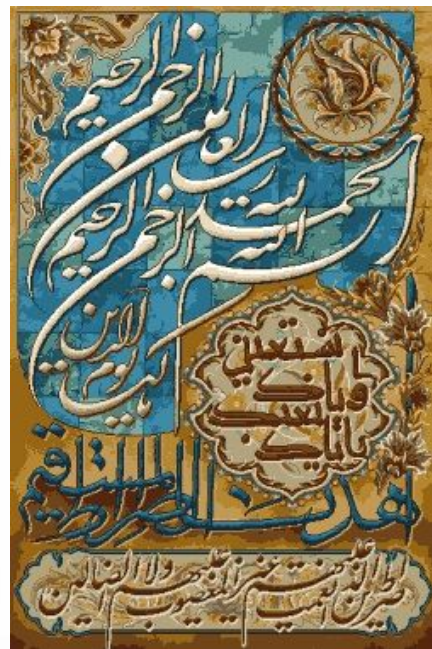 بسم الله الرحمن الرحيم
الحمد لله رب العالمين
الرحمن الرحيم
مالك يوم الدين
اياك نعبد
واياك نستعين
اهدنا الصراط المستقيم
صراط الذين انعمت عليهم غير المغضوب عليهم ولا الضالين